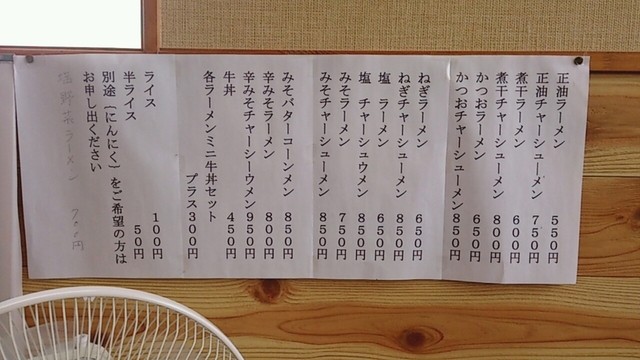 正油ラーメン 550円
正油チャーシューメン 750円
煮干ラーメン 600円
煮干チャーシューメン 800円
かつおラーメン 650円
かつおチャーシューメン 850円
ねぎラーメン 650円
ねぎチャーシューメン 850円
塩 ラーメン 650円
塩 チャーシュウメン 850円
みそラーメン 750円
みそチャーシューメン 850円
みそバターコーンメン 850円
辛みそラーメン 800円
辛みそチャーシーウメン 950円
牛丼 450円
各ラーメンミニ牛丼セット
プラス300円
ライス 100円
半ライス 50円
別途(にんにく)をご希望の方は
お申し出ください
塩野菜ラーメン 700円